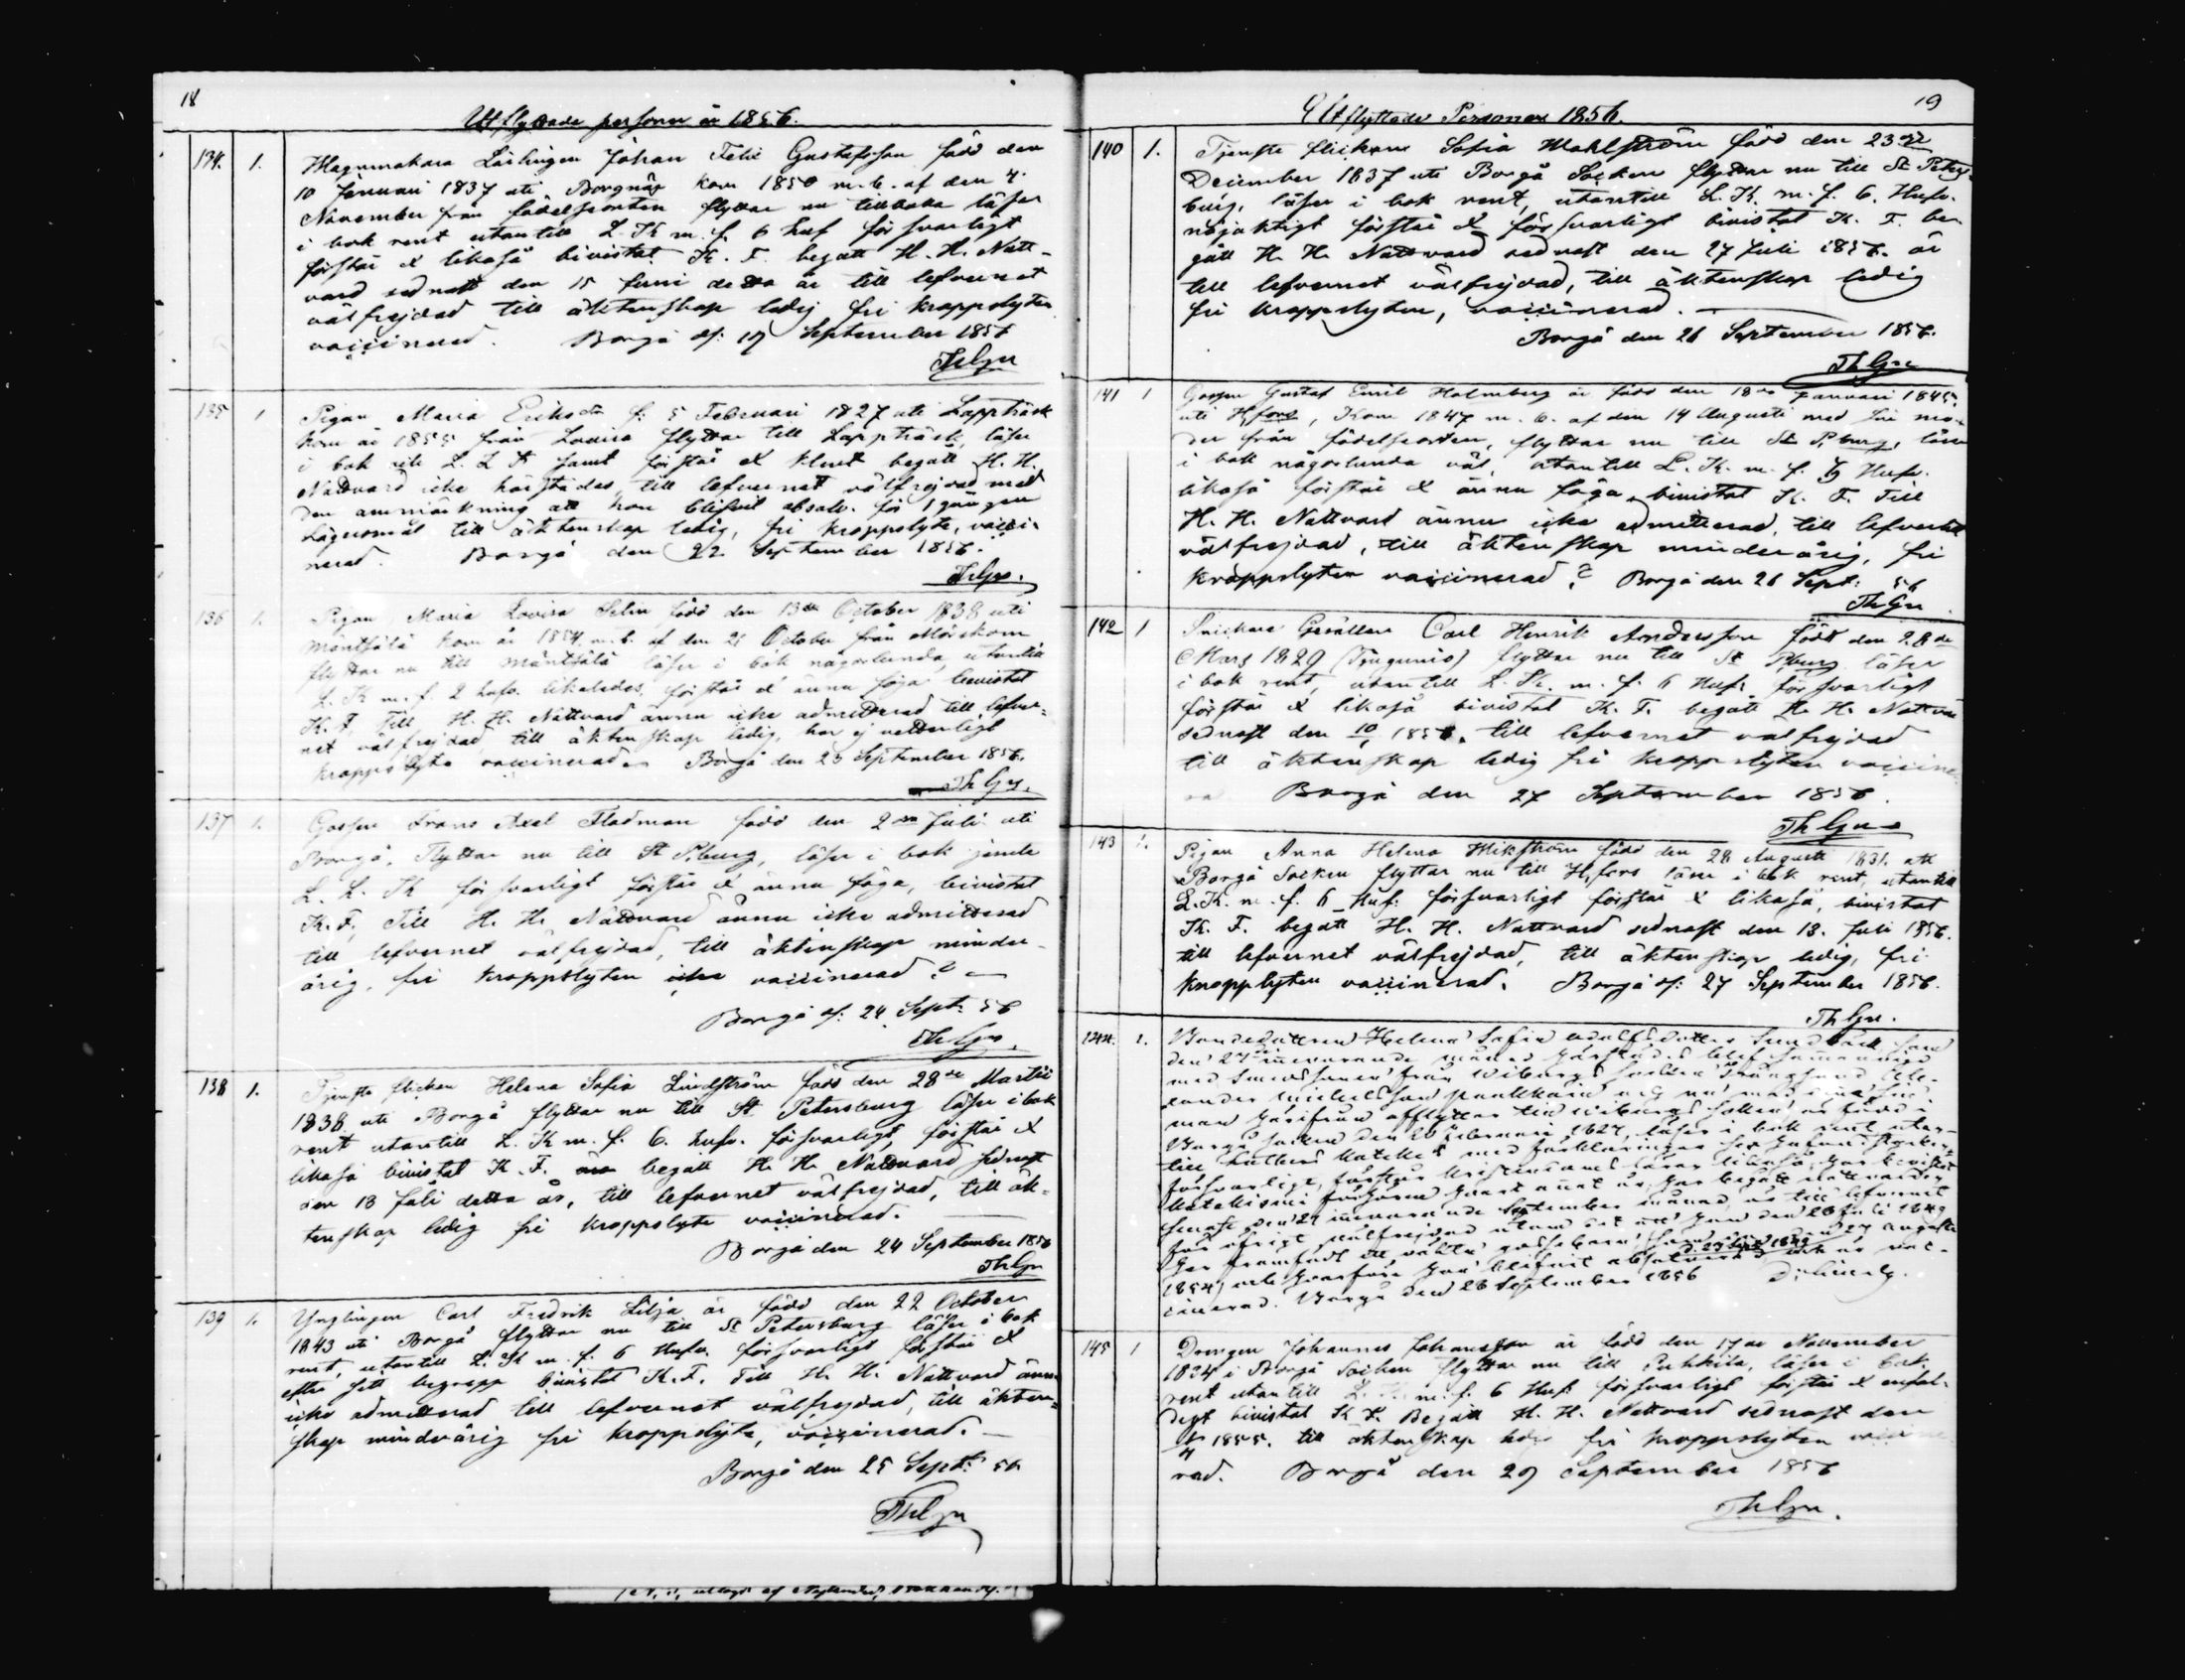 18
Utflyttade personer år 1856.
134. 1. Wagnmakare Lärlingen Johan Felix Gustafsson född den
10 Januari 1837 uti Borgnäs kom 1850 m. b. af den 4.
November från födelseorten flyttar nu tillbaka läser
i bok rent utantill L. K m. f. 6 huf försvarligt
förstår & likaså bivistat K. F. begått H. H. Natt-
vard sednast den 15 Juni detta år till lefvernet
välfrejdad till äktenskap ledig fri kroppslyten
vaccinerad. Borgå d: 19 September 1856
ThGrn
135 1 Pigan Maria Eriksdr f: 5 Februari 1827 uti Lappträsk
kom år 1855 från Lovisa flyttar till Lappträsk, läser
i bok L. L K samt förstår & klent begått H. H.
Nattvard icke härstädes, till lefvernet välfrejdad med
den anmärkning att hon blifvit absolv. för 1 gången
Lägersmål till äktenskap ledig, fri kroppslyte, vacci-
nerad. Borgå den 22 September 1856.
ThGrn.
136 1. Pigan Maria Lovisa Selin född den 13de October 1838 uti
Mäntsälä kom år 1854 m. b. af den 21 October från Mörskom
flyttar nu till Mäntsälä läser i bok någorlunda, utantill
L. K m. f. 2 hufv. likaledes, förstår & ännu föga bevistat
K. F. Till H. H. Nattvard ännu icke admitterad till lefver-
net välfrejdad till äktenskap ledig, har ej vetterligt
kroppslyte vaccinerad. Borgå den 23 September 1856.
Th Grn.
137 1. Gossen Frans Axel Stadman född den 2dra Juli uti
Borgå, flyttar nu till St P.burg, läser i bok jemte
L. L. K försvarligt förstår & ännu föga, bivistat
K. F. Till H. H. Nattvard ännu icke admitterad
till lefvernet välfrejdad, till äktenskap minder-
årig, fri kroppslyten icke vaccinerad?
Borgå d: 24 Sept: 56
ThGrn.
138 1. Tjenste flickan Helena Sofia Lindström född den 28de Martii
1838 uti Borgå flyttar nu till St Petersburg läser i bok
rent utantill L. K m. f. 6. hufv. försvarligt, förstår &
likaså bivistat K. F. begått H. H. Nattvard sednast
den 13 Juli detta år, till lefvernet välfrejdad, till äk-
tenskap ledig fri kroppslyte vaccinerad.
Borgå den 24 September 1856
ThGrn
139 1. Ynglingen Carl Fredrik Lilja är född den 22 October
1843 uti Borgå flyttar nu till St Petersburg läser i bok
rent, utantill L. K m. f. 6 Hufv. försvarligt förstår &
efter sitt begrepp bivistat K. F. Till H. H. Nattvard ännu
icke admitterad till lefvernet välfrejdad, till äkten-
skap minderårig fri kroppslyte, vaccinerad.
Borgå den 25 Sept: 56
ThGrn
19
Utflyttade Personer 1856.
140 1. Tjenste flickan Sofia Wahlström född den 23dje
December 1837 uti Borgå Socken flyttar nu till St Peters-
burg, läser i bok rent, utantill L. K. m. f. 6. Hufv.
nöjaktigt förstår & försvarligt bivistat K. F. be-
gått H. H. Nattvard sednast den 27 Juli 1856. är
till lefvernet välfrejdad, till äktenskap ledig
fri kroppslyten, vaccinerad.
Borgå den 26 September 1856.
ThGrn
141 1 Gossen Gustaf Emil Holmberg är född den 18de Januari 1845
uti H,fors, Kom 1847 m. b. af den 14 Augusti med sin mo-
der från födelseorten, flyttar nu till St P,burg, läser
i bok någorlunda väl, utantill L. K. m. f. Hufv.
likaså förstår & ännu föga, bivistat K. F. Till
H. H. Nattvard ännu icke admitterad, till lefvernet
välfrejdad, till äktenskap minderårig, fri
kroppslyten vaccinerad? Borgå den 26 Sept: 56
ThGrn
142 1 Snickare Gesällen Carl Henrik Andersson född den 28de
Mars 1829 (Tjugunio) flyttar nu till St P,burg läser
i bok rent, utantill L. K. m. f. 6 Huf: försvarligt
förstår & likaså bivistat K. F. begått H. H. Nattva
sednast den 1856. till lefvernet välfrejdad
till äktenskap ledig fri kroppslyten vaccine
ra Borgå den 27 September 1856.
ThGrn
143 1. Pigan Anna Helena Wikström född den 28 Augusti 1831. uti
Borgå Socken flyttar nu till H,fors läser i bok rent, utantill
L. K. m. f. 6 Huf: försvarligt förstår & likaså, bivistat
K. F. begått H. H. Nattvard sednast den 13. Juli 1856.
till lefvernet välfrejdad, till äktenskap ledig, fri
kropplyten vaccinerad. Borgå d: 27 September 1856.
ThGrn.
144. 1. Bondedottren Helena Sofia Adolfsdotter Sundbäck som
den 27de innevarande månad härstädes blef sammanvigd
med från Wiborgs socken
man härifrån afflyttar till Wiborgs socken är född i
Borgå socken den 20 Februari 1827, läser i bok rent utan-
till Luthers Kateches med förklaringar
försvarligt, förstår kristendomsläran likaså, har bevistat
Katekismi förhören hvart annat år, har begått nattvarden
senast den 21 innevarande September månad, är till lefvernet
för öfrigt välfrejdad utom det att hon den 26 Juli 1849
har framfödt ett oäkta gossebarn den 27 Augusti
1854, och hvarföre hon blifvit absolverad och är vac-
cinerad. Borgå den 28 September 1856
145 1 Drengen Johannes Johansson är född den 17de November
1834 i Borgå Socken flyttar nu till Pukkila, läser i bok
rent utantill L. K. m. f. 6 Huf: försvarligt förstår & enfal-
digt bivistat K F. Begått H. H. Nattvard sednast den
1855. till äktenskap ledig fri kroppslyten vaccine
rad. Borgå den 29 September 1856
ThGrn.